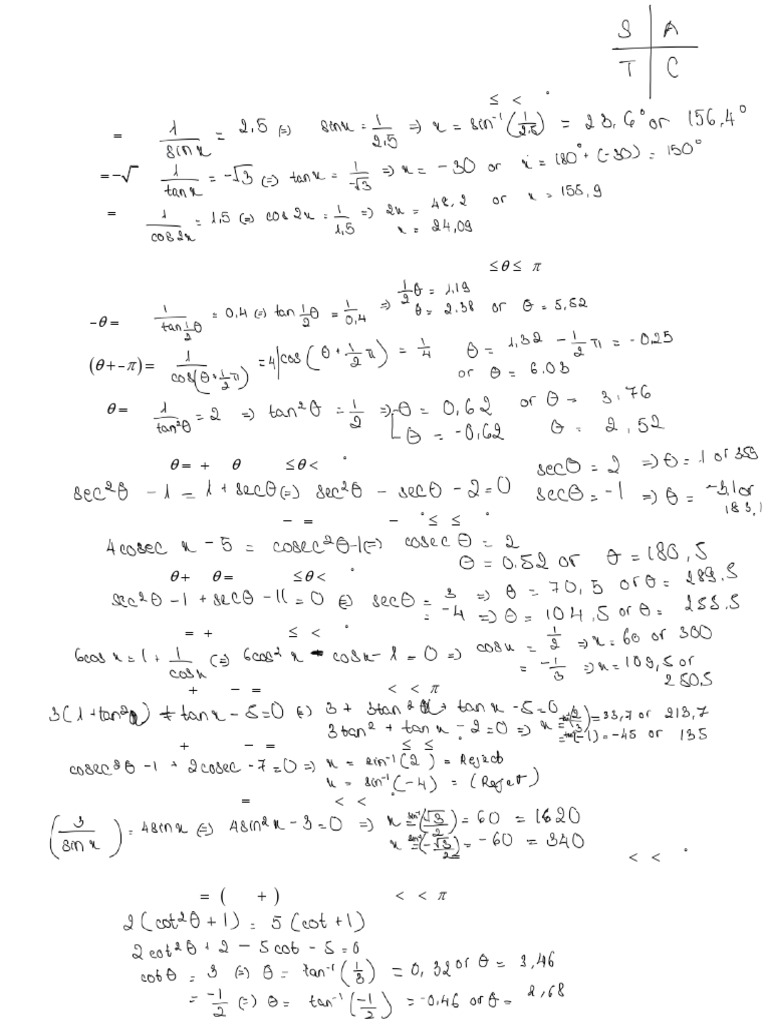 S A
T C
≤ < °
= 1/sin x = 2,5 (=) sin x = 1/2,5 => x = sin⁻¹(1/2,5) = 23,6° or 156,4°
= -√ 1/tan x = -√3 (=) tan x = 1/-√3 => x = -30 or x = 180° + (-30) = 150°
= 1/cos 2x = 1,5 (=) cos 2x = 1/1,5 => 2x = 48,2 or x = 155,9
x = 24,09
≤ θ ≤ π
- θ = 1/tan ½θ = 0,4 (=) tan ½θ = 1/0,4 => ½θ = 1,19
θ = 2.38 or θ = 5,52
(θ + - π) = 1/cos(θ + ½π) = 4 / cos(θ + ½π) = ¼ θ = 1,32 - ½π = -0,25
or θ = 6.03
θ = 1/tan²θ = 2 => tan²θ = ½ => θ = 0,62 or θ = 3,76
θ = -0,62 θ = 2,52
θ = + θ ≤ θ < °
sec²θ - 1 = 1 + secθ (=) sec²θ - secθ - 2 = 0 secθ = 2 => θ = 1 or 359
secθ = -1 => θ = -3,1 or 183,1
- = - ° ≤ ≤ °
4cosec x - 5 = cosec²θ - 1 (=) cosec θ = 2
θ = 0.52 or θ = 180,5
θ + θ = ≤ θ < °
sec²θ - 1 + secθ - 11 = 0 (=) secθ = 3 => θ = 70,5 or θ = 289.5
= -4 => θ = 104,5 or θ = 255.5
= + ≤ < °
6cos x = 1 + 1/cos x (=) 6cos² x - cos x - 1 = 0 => cos x = ½ => x = 60 or 300
= -⅓ => x = 109,5 or 250.5
+ - = < < π
3(1 + tan²x) + tan x - 5 = 0 (=) 3 + 3tan²x + tan x - 5 = 0
3tan² + tan x - 2 = 0 => x = tan⁻¹(2/3) = 33,7 or 213,7
= tan⁻¹(-1) = -45 or 135
+ - = ≤ ≤ °
cosec²θ - 1 + 2cosec - 7 = 0 => x = sin⁻¹(2) = Reject
x = sin⁻¹(-4) = (Reject)
= < < °
(3/sin x) = 4sin x (=) 4sin² x - 3 = 0 => x = sin⁻¹(√3/2) = 60 = 1620
x = sin⁻¹(-√3/2) = -60 = 340
< < °
= ( + ) < < π
2(cot²θ + 1) = 5(cot + 1)
2cot²θ + 2 - 5cot - 5 = 0
cotθ = 3 (=) θ = tan⁻¹(⅓) = 0,32 or θ = 3,46
= -½ (=) θ = tan⁻¹(-½) = -0,46 or θ = 2,68